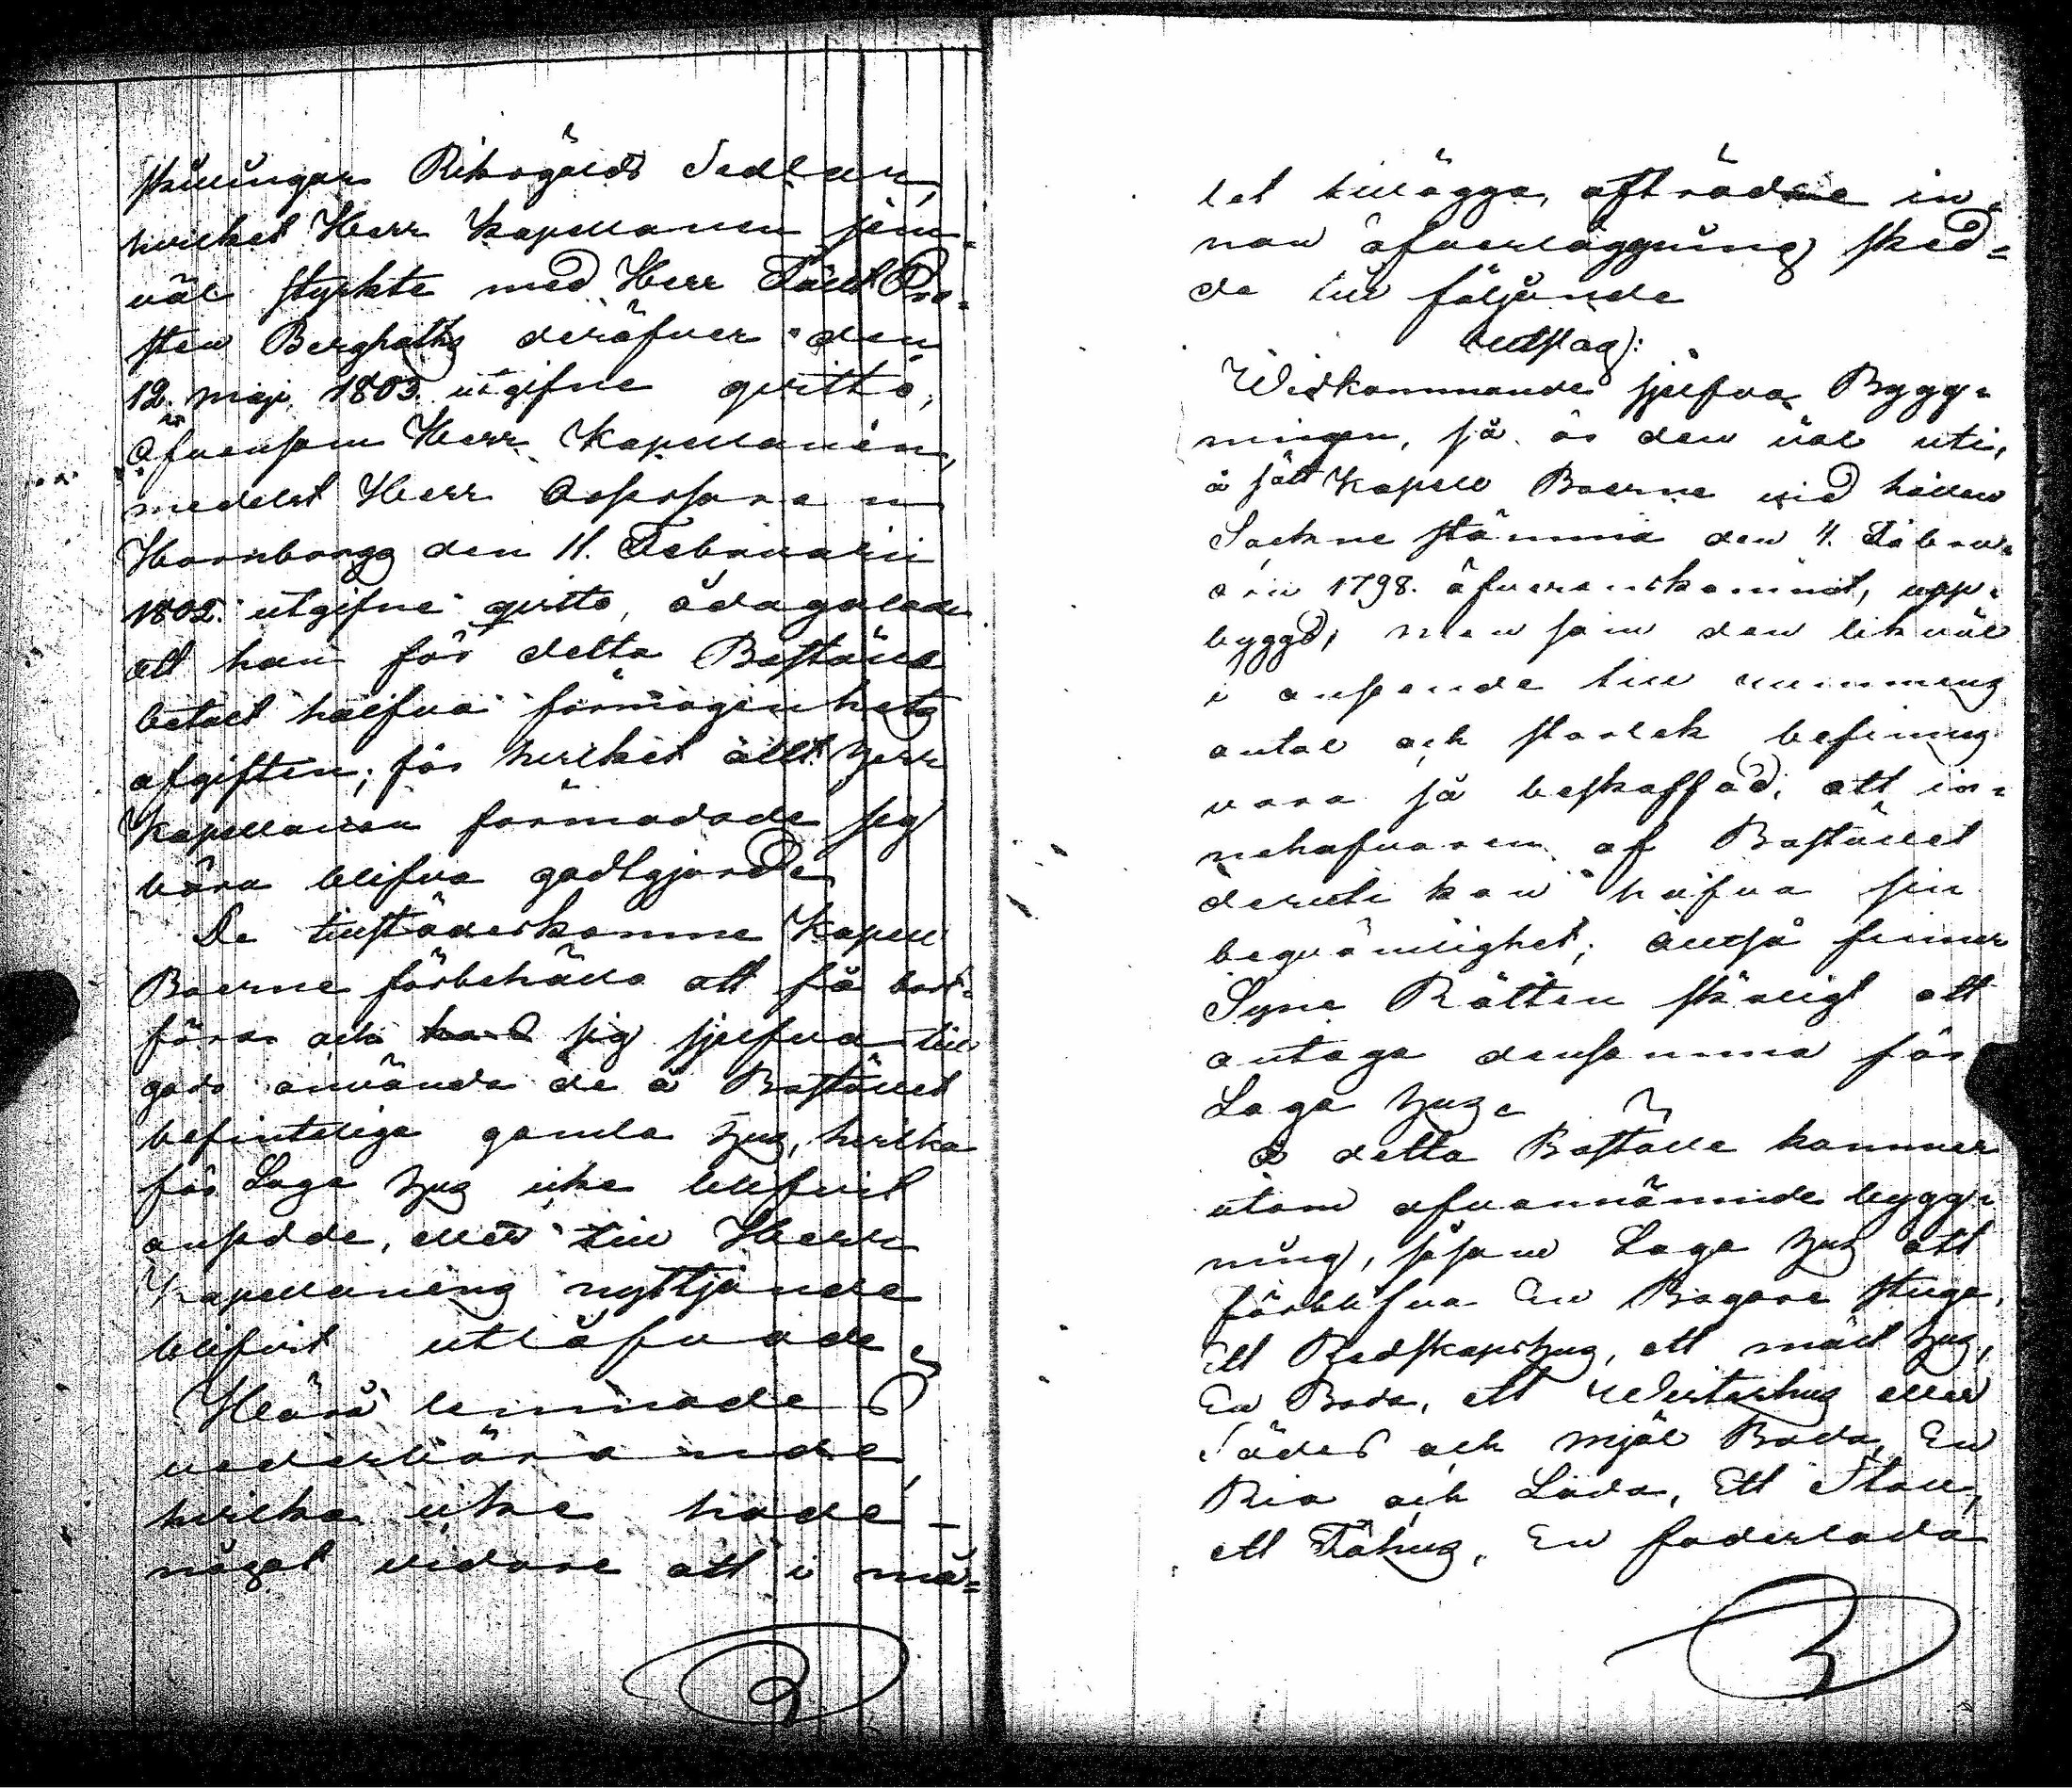 skillingar Riksgälds Sedlar,
hvilket Herr Kapellanen jem=
väl styrkte med Herr Fält Pro=
sten Bergbaths deröfver den
12. maji 1803. utgifne qvitto,
Äfvensom Herr Kapellanen,
medelst Herr Assessoren
Hornborgs den 11. Februarii
1802. utgifne qvitto, ådagalade
att han för detta Boställe
betalt halfva förmögenhets
afgiften; för hvilket allt Herr
Kapellanen förmodade sig
böra blifva godtgjord.
De tillstädeskomne Kapell
Boerne förbehöllo att få bort=
föra och sig sjelfva till
godo använda de å Bostället
befinteliga gamla hus, hvilka
för Laga hus icke blifvit
ansedde, eller till Herr
Kapellanens nyttjande
blifvit utlåfvade.
Härå lemnade
vederbörande,
hvilka icke hade
något vidare att i må=
let tillägga, afträde in=
nan öfverläggning sked=
de till följande
Utslag:
Widkommande sjelfva Bygg=
ningen, så är den väl uti,
å sätt Kapell Boerne vid hållen
Sockne stämma den 4. Febru=
arii 1798. öfverenskommit, upp=
byggd, men som den likväl
i anseende till rummens
antal och storlek befinnes
vara så beskaffad, att in=
nehafvaren af Bostället
deruti kan hafva sin
beqvämlighet; Alltså finner
Syne Rätten skäligt att
antaga densamma för
Laga hus.
Å detta Boställe kommer
utom ofvannämnde bygg=
ning, såsom Laga hus att
förblifva En Bagare stuga,
Ett Redskapshus, ett mält hus,
En Boda, ett Visterhus eller
Södes och mjöl Boda, En
Ria och Lada, Ett Stall,
ett Fähus, En foderlada